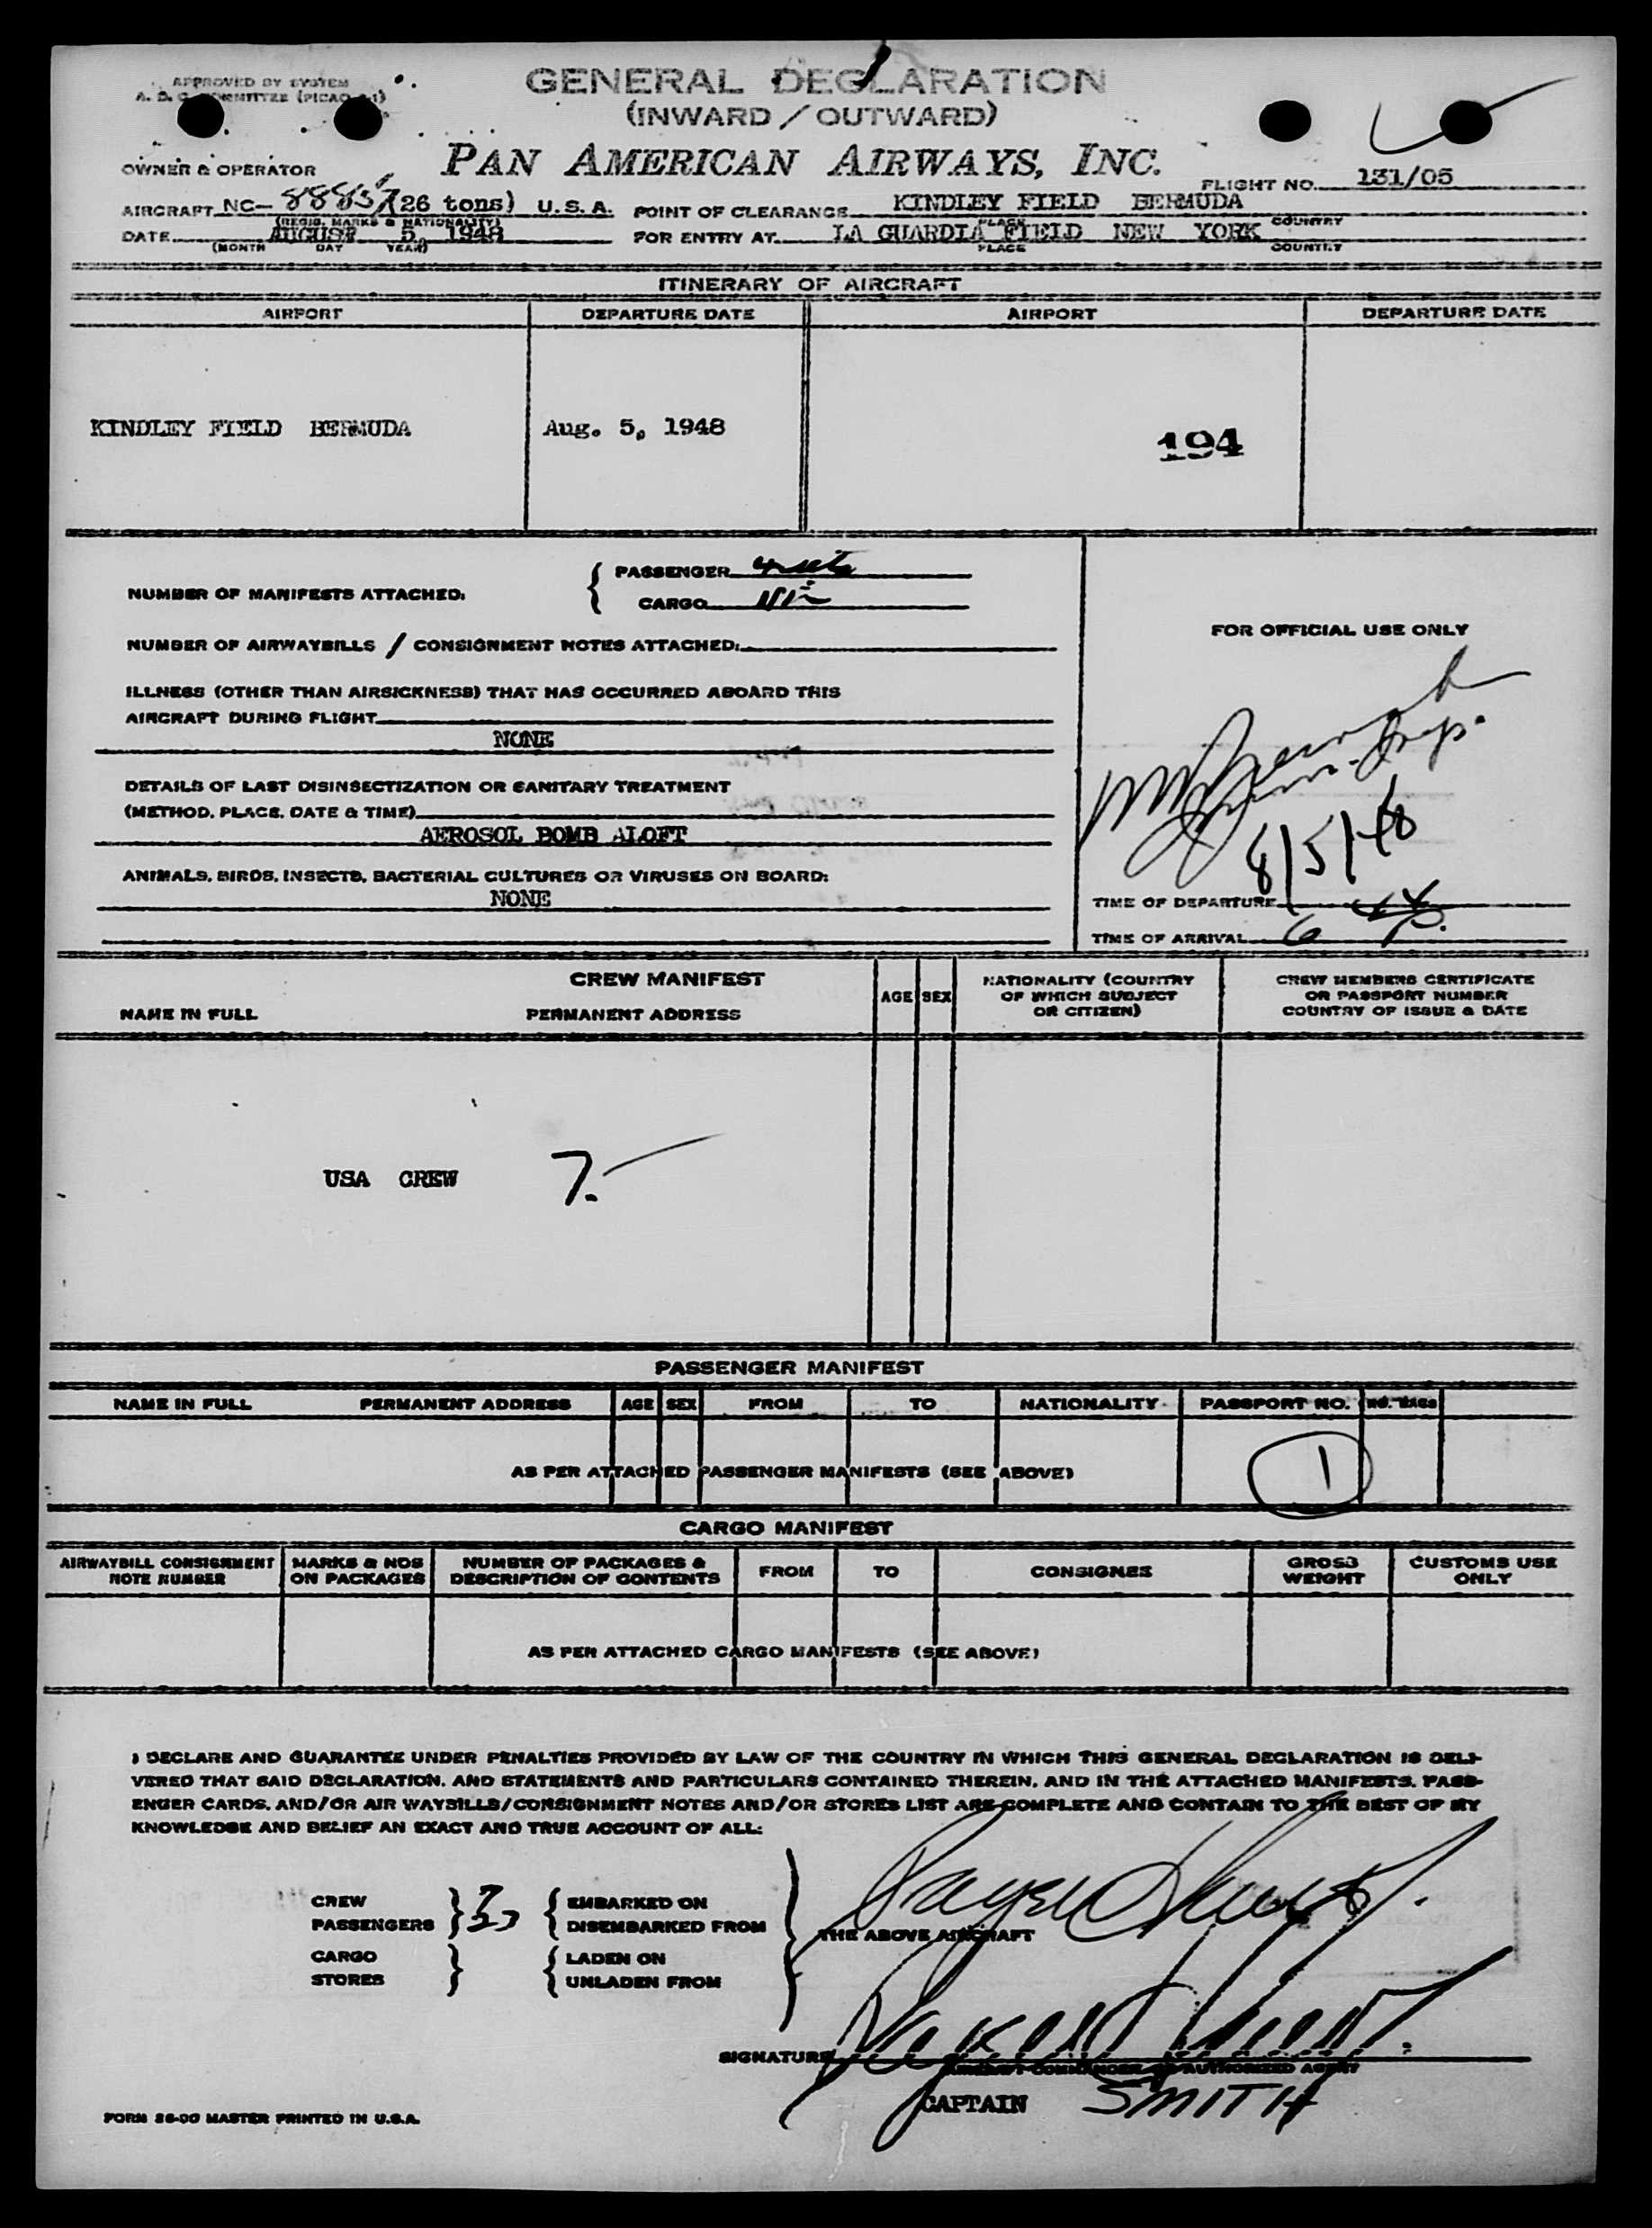 APPROVED BY SYSTEM
GENERAL DECLARATION
(INWARD / OUTWARD)
OWNER & OPERATOR PAN AMERICAN AIRWAYS, INC.
FLIGHT NO. 131/05
AIRCRAFT NC- 88857 (26 tons) U.S.A. POINT OF CLEARANCE KINDLEY FIELD BERMUDA
(REGIS. MARKS & NATIONALITY) PLACE COUNTRY
DATE AUGUST 5, 1948 FOR ENTRY AT LA GUARDIA FIELD NEW YORK
(MONTH DAY YEAR) PLACE COUNTRY
ITINERARY OF AIRCRAFT
AIRPORT DEPARTURE DATE AIRPORT DEPARTURE DATE
KINDLEY FIELD BERMUDA Aug. 5, 1948 194
NUMBER OF MANIFESTS ATTACHED: PASSENGER
CARGO Nil
FOR OFFICIAL USE ONLY
NUMBER OF AIRWAYBILLS / CONSIGNMENT NOTES ATTACHED:
ILLNESS (OTHER THAN AIRSICKNESS) THAT HAS OCCURRED ABOARD THIS
AIRCRAFT DURING FLIGHT
NONE
DETAILS OF LAST DISINSECTIZATION OR SANITARY TREATMENT
(METHOD, PLACE, DATE & TIME)
AEROSOL BOMB ALOFT
8/5/48
ANIMALS, BIRDS, INSECTS, BACTERIAL CULTURES OR VIRUSES ON BOARD:
NONE
TIME OF DEPARTURE
TIME OF ARRIVAL 6 P.
CREW MANIFEST
NAME IN FULL PERMANENT ADDRESS AGE SEX NATIONALITY (COUNTRY OF WHICH SUBJECT OR CITIZEN) CREW MEMBERS CERTIFICATE OR PASSPORT NUMBER COUNTRY OF ISSUE & DATE
USA CREW 7.
PASSENGER MANIFEST
NAME IN FULL PERMANENT ADDRESS AGE SEX FROM TO NATIONALITY PASSPORT NO. NO. BAGS
AS PER ATTACHED PASSENGER MANIFESTS (SEE ABOVE) 1
CARGO MANIFEST
AIRWAYBILL CONSIGNMENT NOTE NUMBER MARKS & NOS ON PACKAGES NUMBER OF PACKAGES & DESCRIPTION OF CONTENTS FROM TO CONSIGNEE GROSS WEIGHT CUSTOMS USE ONLY
AS PER ATTACHED CARGO MANIFESTS (SEE ABOVE)
I DECLARE AND GUARANTEE UNDER PENALTIES PROVIDED BY LAW OF THE COUNTRY IN WHICH THIS GENERAL DECLARATION IS DELI-
VERED THAT SAID DECLARATION, AND STATEMENTS AND PARTICULARS CONTAINED THEREIN, AND IN THE ATTACHED MANIFESTS, PASS-
ENGER CARDS, AND/OR AIR WAYBILLS/CONSIGNMENT NOTES AND/OR STORES LIST ARE COMPLETE AND CONTAIN TO THE BEST OF MY
KNOWLEDGE AND BELIEF AN EXACT AND TRUE ACCOUNT OF ALL:
CREW 7 EMBARKED ON
PASSENGERS DISEMBARKED FROM THE ABOVE AIRCRAFT
CARGO LADEN ON
STORES UNLADEN FROM
SIGNATURE
AIRCRAFT COMMANDER OR AUTHORIZED AGENT
CAPTAIN SMITH
FORM 26-00 MASTER PRINTED IN U.S.A.